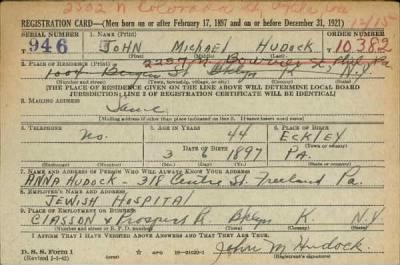 2302 N
REGISTRATION CARD—(Men born on or after February 17, 1897 and on or before December 31, 1921)
SERIAL NUMBER 1. NAME (Print) ORDER NUMBER
946 JOHN MICHAEL HUDOCK 10,382
(First) (Middle) (Last)
2. PLACE OF RESIDENCE (Print)
1004 Bergen St. Bklyn K. N.Y.
(Number and street) (Town, township, village, or city) (County) (State)
[THE PLACE OF RESIDENCE GIVEN ON THE LINE ABOVE WILL DETERMINE LOCAL BOARD
JURISDICTION; LINE 2 OF REGISTRATION CERTIFICATE WILL BE IDENTICAL]
3. MAILING ADDRESS
Same
[Mailing address if other than place indicated on line 2. If same insert word same]
4. TELEPHONE 5. AGE IN YEARS 6. PLACE OF BIRTH
No. 44 ECKLEY
DATE OF BIRTH (Town or county)
3 6 1897 PA.
(Exchange) (Number) (Mo.) (Day) (Yr.) (State or country)
7. NAME AND ADDRESS OF PERSON WHO WILL ALWAYS KNOW YOUR ADDRESS
ANNA HUDOCK - 318 Centre St. Freeland Pa.
8. EMPLOYER'S NAME AND ADDRESS
JEWISH HOSPITAL
9. PLACE OF EMPLOYMENT OR BUSINESS
CLASSON & Prospect Pl. Bklyn K. N.Y.
(Number and street or R. F. D. number) (Town) (County) (State)
I AFFIRM THAT I HAVE VERIFIED ABOVE ANSWERS AND THAT THEY ARE TRUE.
D. S. S. Form 1
(Revised 1-5-42) GPO 16—21630-1
John M Hudock
(Registrant's signature)